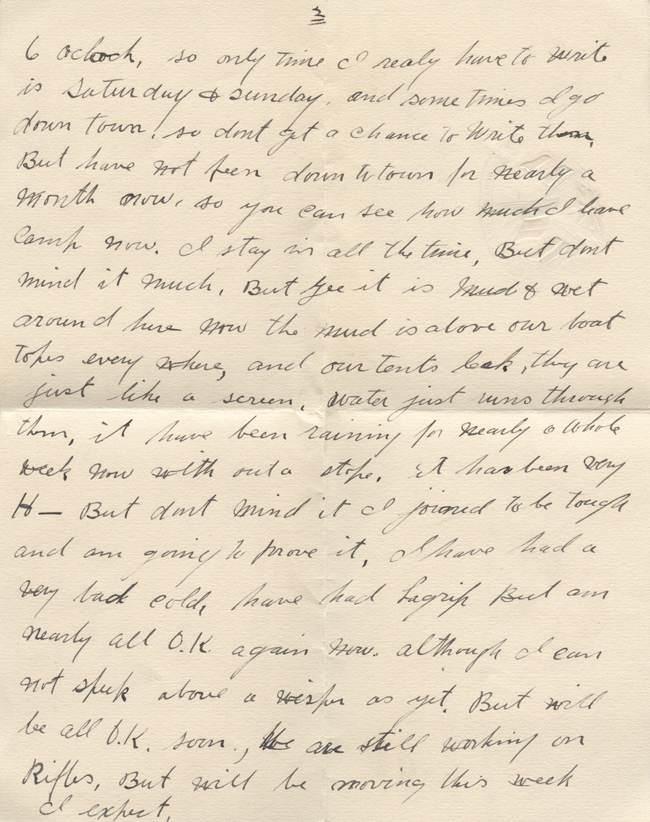 3
6 oclock, so only time I realy have to write
is Saturday & Sunday. and some times I go
down town. so dont get a chance to Write then,
But have not been down to town for nearly a
month now. so you can see how much I leave
camp now. I stay in all the time, But dont
mind it much. But gee it is Mud & wet
around here now the mud is above our boat
topes every where, and our tents leak, they are
just like a screen, water just runs through
them, it have been raining for nearly a whole
week now with out a stope. it has been very
H— But dont mind it I joined to be tough
and am going to prove it, I have had a
very bad cold, have had Lagrip But am
nearly all O.K. again now. although I can
not speek above a wisper as yet. But will
be all O.K. soon., We are still working on
Rifles, But will be moving this week
I expect.